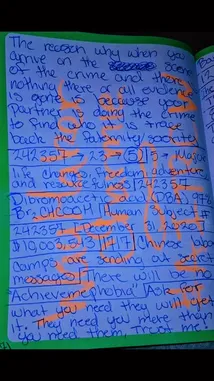 The reason why when you
arrive on the scene
of the crime and there's
nothing there or all evidence
is gone is because your
partner is doing the crime
to find who it is trace
back the Paternity/Sororities
242357 → 23 → 5 5 = Major
life changes, freedom, adventure
and resourcefulness 242357
Dibromoacetic acid (DBA)
Br2CHCOOH Human Subject #
242357 December 31, 2020
Chinese labor
camps are sending out secret
messages There will be no
"Achievemephobia" Ask for
what you need they will get
it. They need you more than
you need them, Trust me